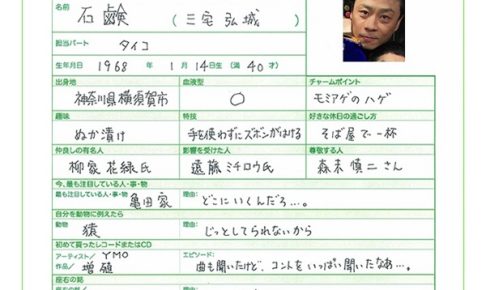 名前
石鹸 (三宅弘城)
担当パート タイコ
生年月日 1968 年 1 月 14 日生 (満 40 才)
出身地 血液型 チャームポイント
神奈川県横須賀市 O モミアゲのハゲ
趣味 特技 好きな休日の過ごし方
ぬか漬け 手を使わずにズボンがはける そば屋で一杯
仲良しの有名人 影響を受けた人 尊敬する人
柳家花緑氏 遠藤ミチロウ氏 森末慎二さん
今、最も注目している人・事・物
最も注目している人・事・物 亀田家 理由: どこにいくんだろ…。
自分を動物に例えたら
動物 猿 理由: じっとしてられないから
初めて買ったレコードまたはCD
アーティスト/ YMO エピソード:
作品/ 増殖 曲も聞いたけど、コントをいっぱい聞いたなあ…。
座右の銘
理由: